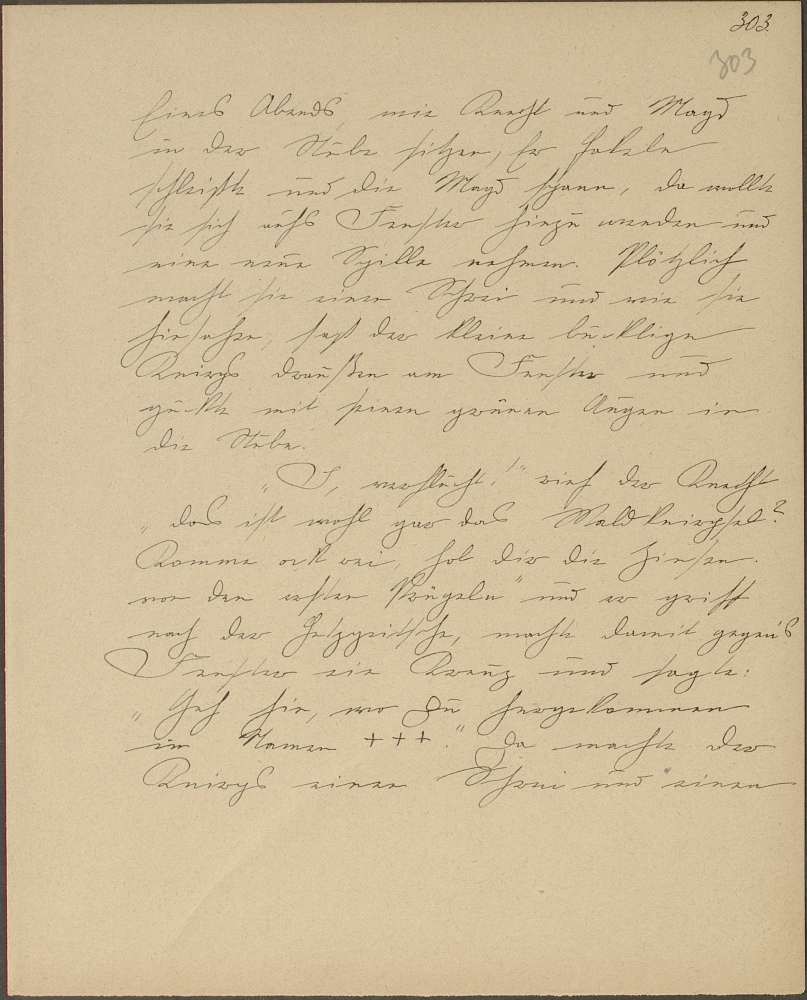 303.
303
Eines Abends, wie Knecht und Magd
in der Stube sitzen, Er Fakeln
schleißte und die Magd spann, da wollte
sie sich aufs Fenster hinzu wenden und
eine neue Spille nehmen. Plötzlich
macht sie einen Schrei und wie sie
hinsahen, saß der kleine bucklige
Knirps draußen am Fenster und
guckte mit seinen grünen Augen in
die Stube.
„I, verflucht!" rief der Knecht
„das ist wohl gar das Waldknirpsel?
Komme ock rei, hol dir die
vor den ersten Prügeln" und er griff
nach der Hetzpeitsche, machte damit gegen's
Fenster ein Kreuz und sagte:
„Geh hin, wo Du hergekommen
im Namen +++." Da machte der
Knirps einen Schrei und einen